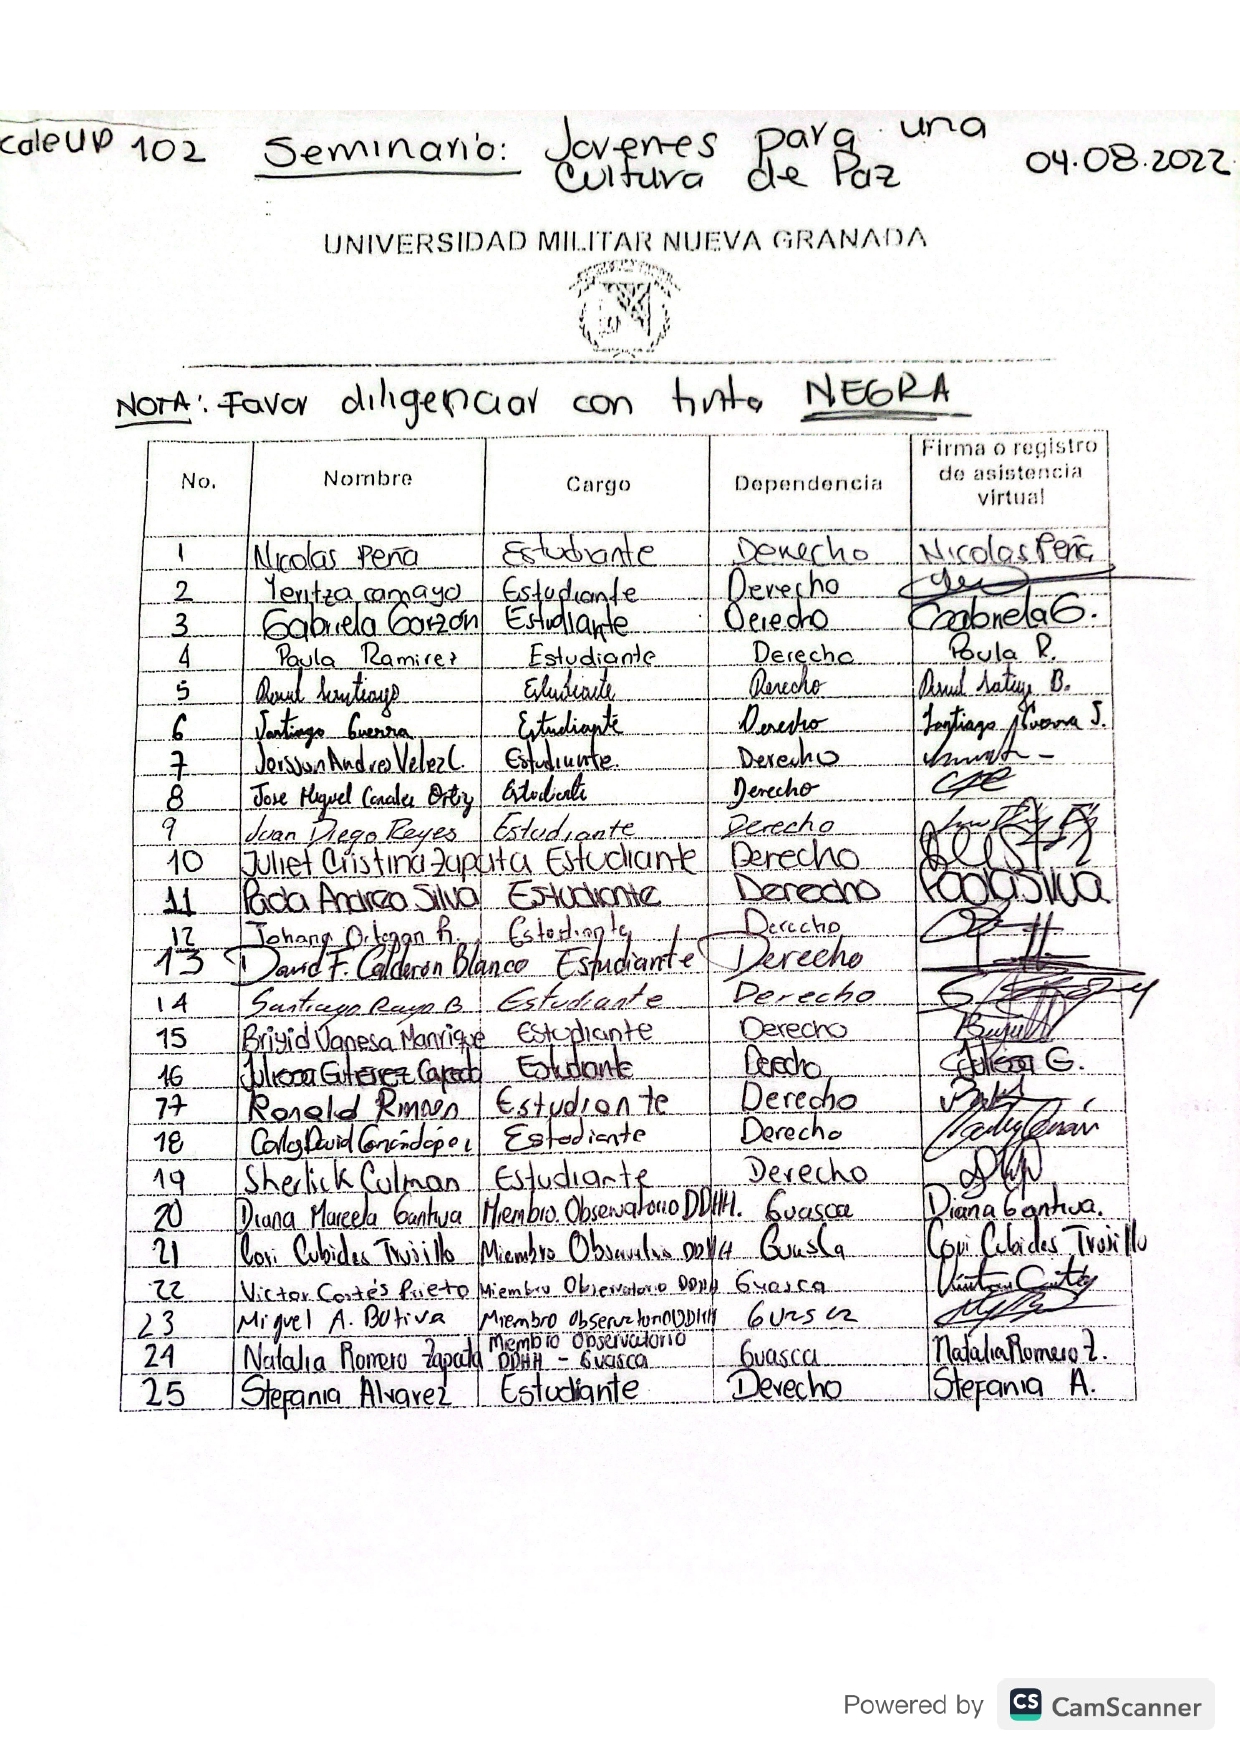 caleUP 102 Seminario: Jovenes para una
Cultura de Paz 04.08.2022
UNIVERSIDAD MILITAR NUEVA GRANADA
NOTA: Favor diligenciar con tinta NEGRA
No. Nombre Cargo Dependencia Firma o registro de asistencia virtual
1 Nicolas Peña Estudiante Derecho Nicolas Peña
2 Yeritza camayo Estudiante Derecho
3 Gabriela Garzón Estudiante Derecho Gabriela G.
4 Paula Ramirez Estudiante Derecho Paula R.
5 Estudiante Derecho B.
6 Santiago Guerra Estudiante Derecho Santiago Guerra J.
7 Jersson Andres Velez C. Estudiante. Derecho
8 Jose Miguel Canales Ortiz Estudiante Derecho
9 Juan Diego Reyes Estudiante Derecho
10 Juliet Cristina Zapata Estudiante Derecho
11 Paola Andrea Silva Estudiante Derecho Paola Silva
12 Johana R. Estudiante Derecho
13 David F. Calderón Blanco Estudiante Derecho
14 Santiago Rayo B Estudiante Derecho
15 Brigid Vanesa Manrique Estudiante Derecho
16 Juliana Estudiante Derecho Juliana G.
17 Ronald Estudiante Derecho
18 Carlos David Estudiante Derecho
19 Sherlick Culman Estudiante Derecho
20 Diana Marcela Gantiva Miembro. Observatorio DDHH. Guasca Diana Gantiva.
21 Cori Cubides Trujillo Miembro Observatorio DDHH Guasca Cori Cubides Trujillo
22 Victor Cortés Prieto Miembro Observatorio DDHH Guasca
23 Miguel A. Butiva Miembro Observatorio DDHH Guasca
24 Natalia Romero Zapata Miembro Observatorio DDHH - Guasca Guasca Natalia Romero Z.
25 Stefania Alvarez Estudiante Derecho Stefania A.
Powered by CS CamScanner